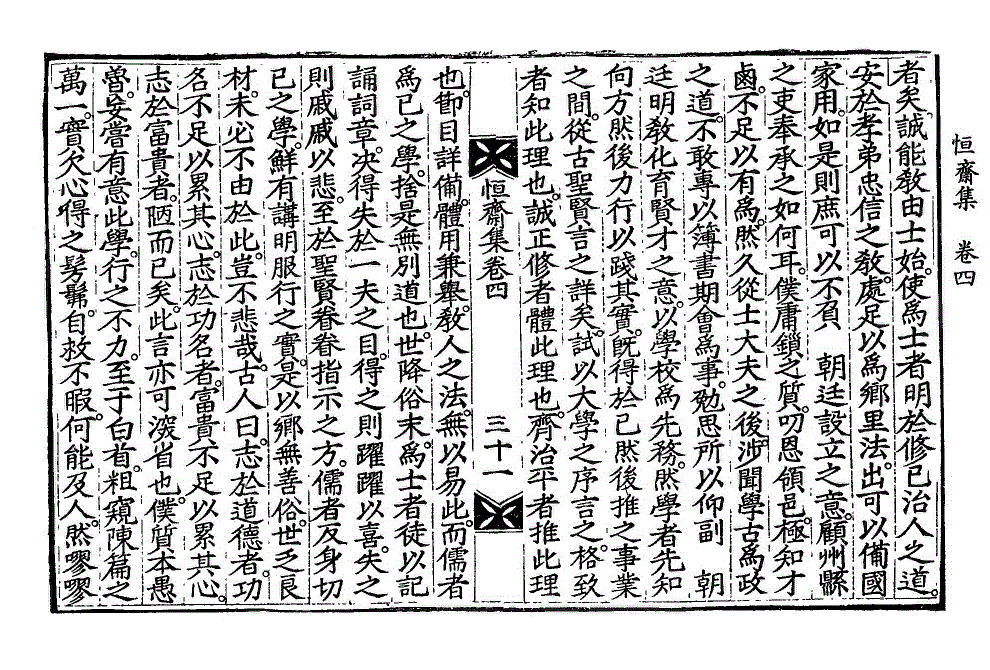 恒齋集　卷四
者矣。誠能教由士始。使爲士者明於修已治人之道。
安於孝弟忠信之教。處足以爲鄉里法。出可以備國
家用。如是則庶可以不負　朝廷設立之意。顧州縣
之吏奉承之如何耳。僕庸鎖之質。叨恩領邑。極知才
鹵。不足以有爲。然久從士大夫之後。涉聞學古爲政
之道。不敢專以簿書期會爲事。勉思所以仰副　朝
廷明教化育賢才之意。以學校爲先務。然學者先知
向方然後力行以踐其實。旣得於已然後推之事業
之間。從古聖賢言之詳矣。試以大學之序言之。格致
者知此理也。誠正修者體此理也。齊治平者推此理
恒齋集卷四
三十一
也。節目詳備。體用兼舉。教人之法。無以易此。而儒者
爲已之學。捨是無別道也。世降俗末。爲士者徒以記
誦詞章。決得失於一夫之目。得之則躍躍以喜。失之
則戚戚以悲。至於聖賢眷眷指示之方。儒者反身切
已之學。鮮有講明服行之實。是以鄉無善俗。世乏良
材。未必不由於此。豈不悲哉。古人曰。志於道德者。功
名不足以累其心。志於功名者。富貴不足以累其心。
志於富貴者。陋而已矣。此言亦可深省也。僕質本愚
魯。妄嘗有意此學。行之不力。至于白首。粗窺陳篇之
萬一。實欠心得之髣髴。自救不暇。何能及人。然嘐嘐